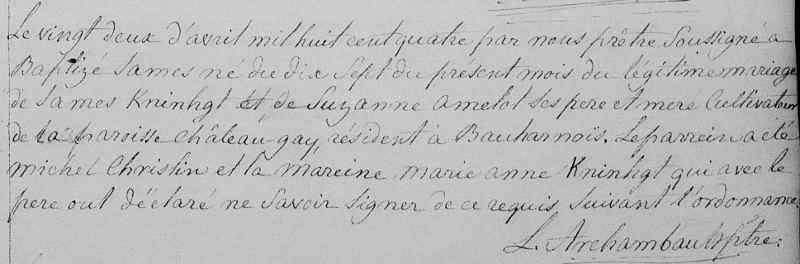 Le vingt deux d'avril mil huit cent quatre par nous prêtre Soussigné a
Baptizé James né du dix Sept du présent mois du légitime mariage
de James Kninhgt et de Suzanne amelot Ses pere et mere Cultivateur
de la paroisse Château gay, résident à Bauharnois. Le parrein a été
michel Christin et la mareine marie anne Kninhgt qui avec le
pere ont déclaré ne Savoir Signer de ce requis Suivant l'ordonnance
L. Archambault ptre.